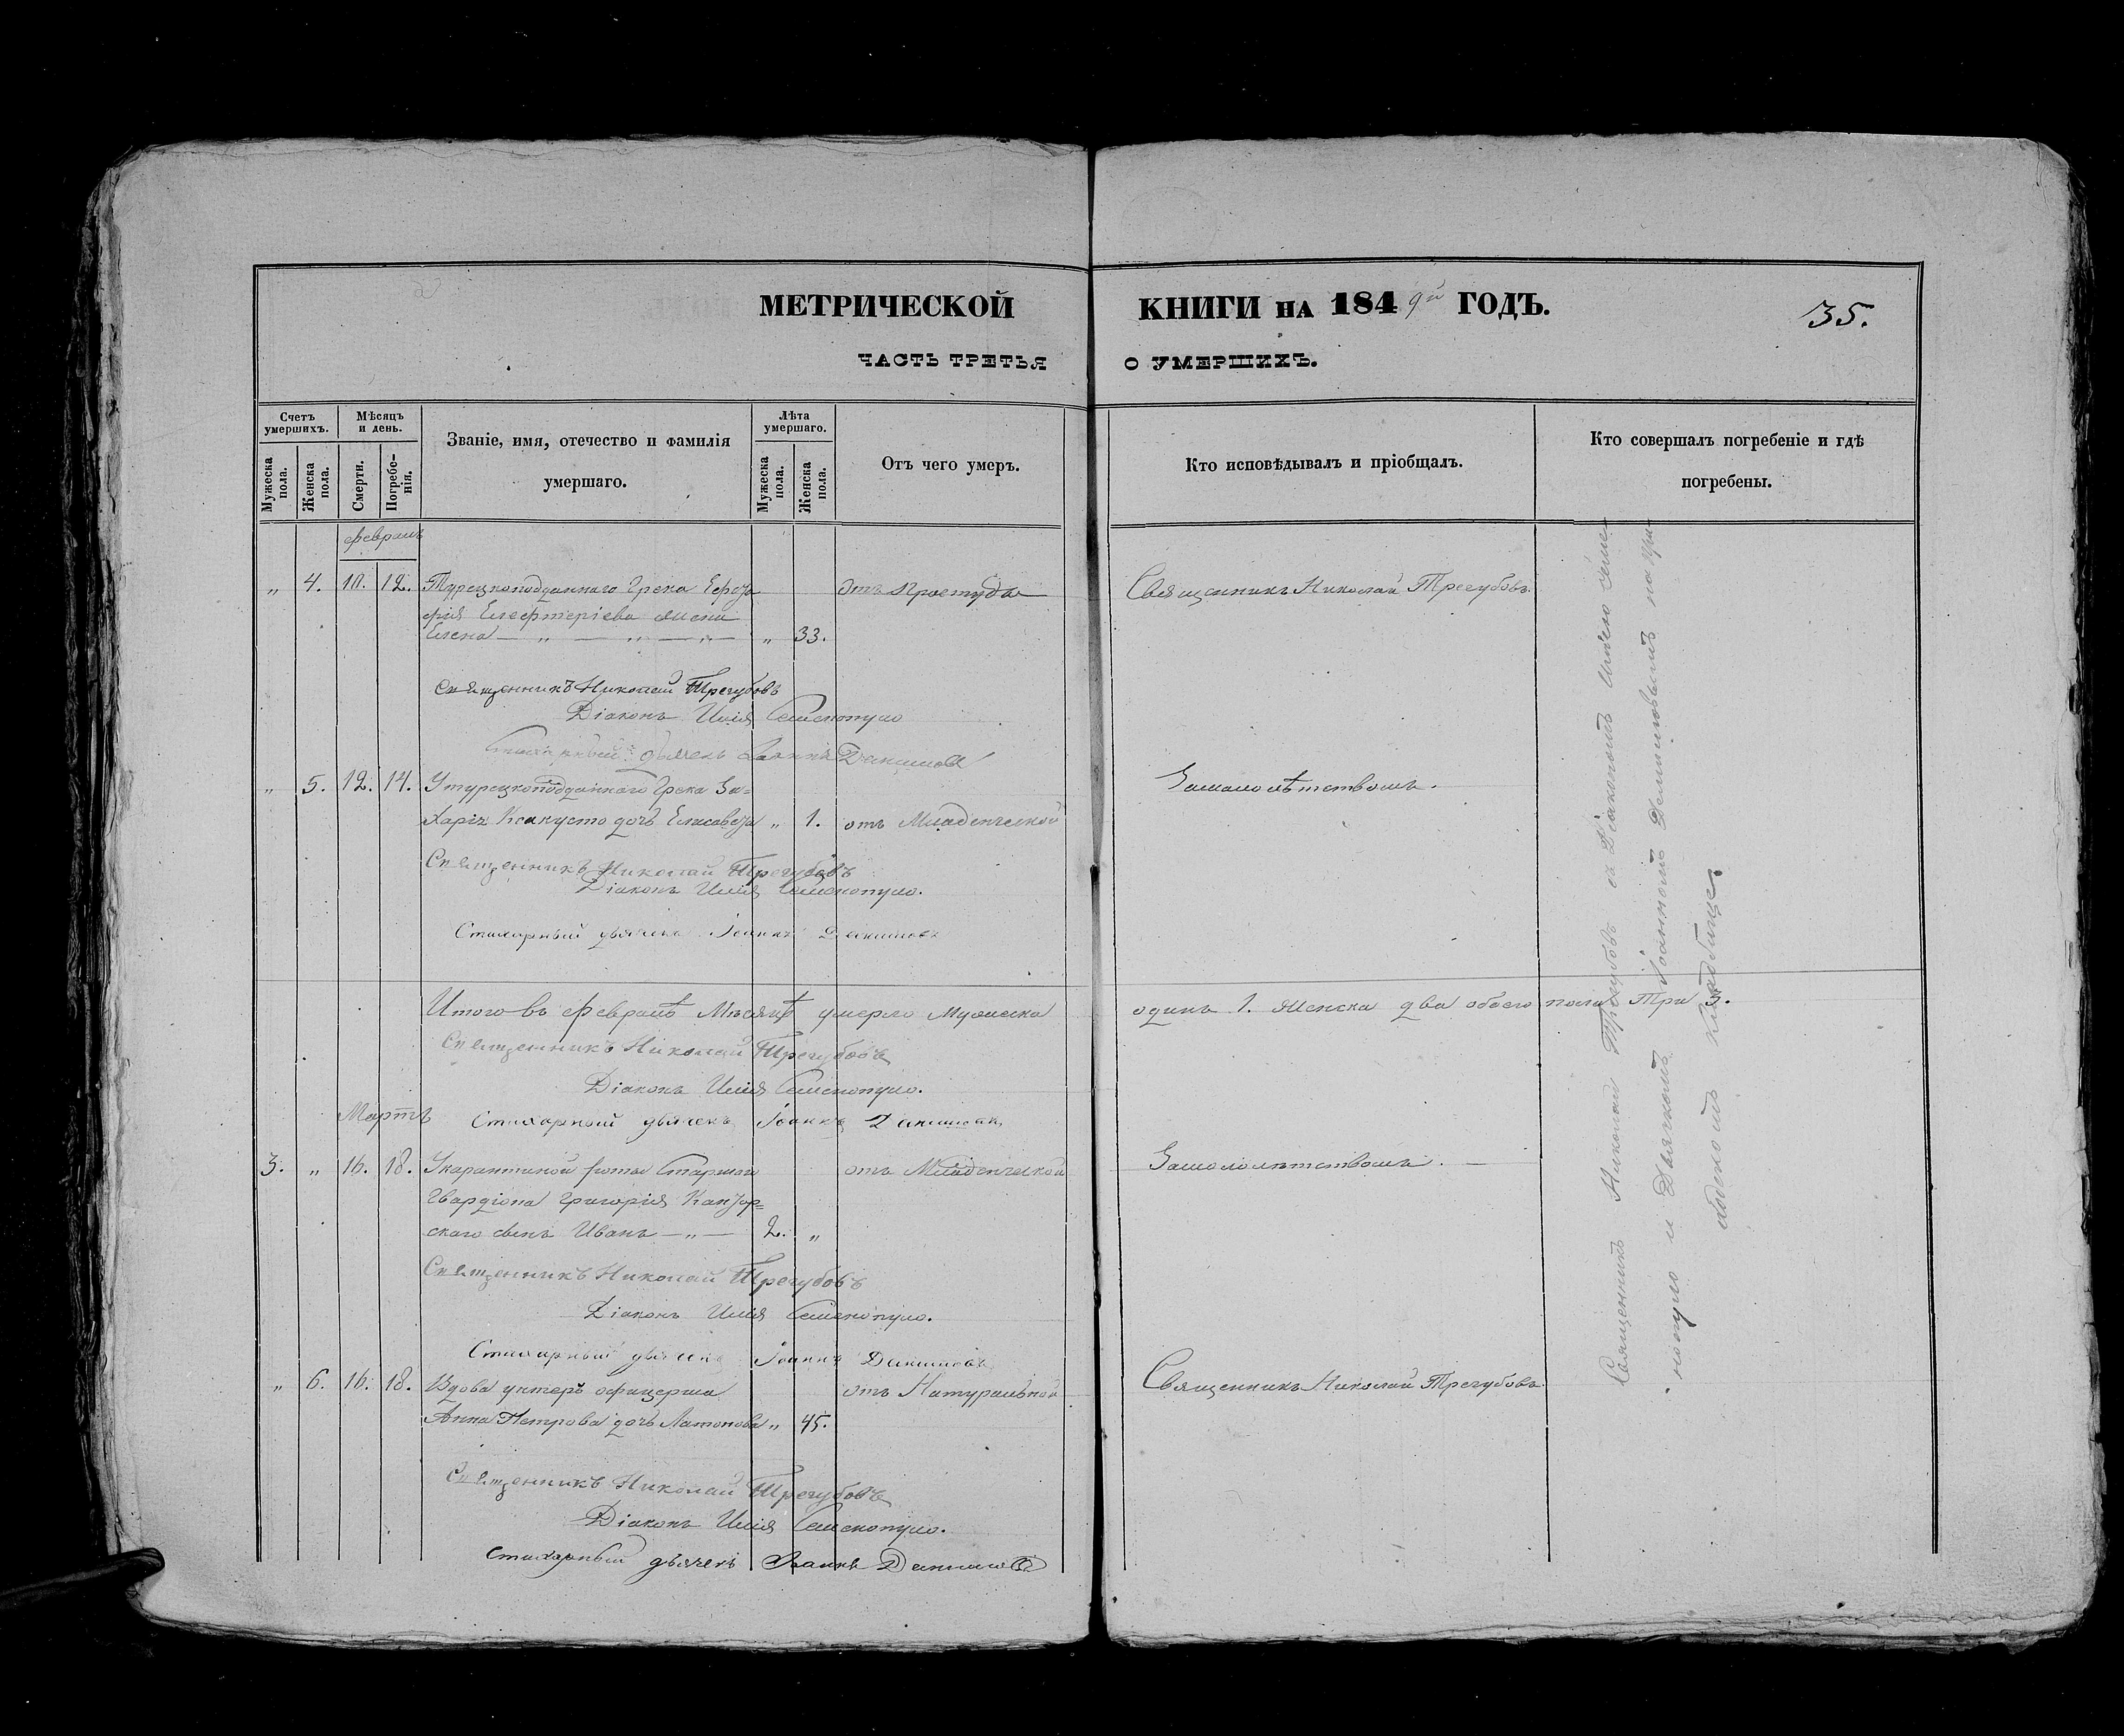 МЕТРИЧЕСКОЙ КНИГИ НА 1849й ГОДЪ.
35.
ЧАСТЬ ТРЕТЬЯ О УМЕРШИХЪ.
Счетъ умершихъ.
Мужеска пола.
Женска пола.
Мѣсяцъ и день.
Смерти.
Погребенія.
Званіе, имя, отечество и фамилія
умершаго.
Лѣта умершаго.
Мужеска пола.
Женска пола.
Отъ чего умеръ.
Кто исповѣдывалъ и пріобщалъ.
Кто совершалъ погребеніе и гдѣ
погребены.
февраль
„ 4. 10. 12. Турецкоподданнаго Грека отъ простуды Священникъ Николай Трегубовъ
Елефтеріева жена
Елена — „ — „ — „ — „ 33.
Священникъ Николай Трегубовъ
Діаконъ Илія Семенопуло
Стихарный дьячекъ Іоаннъ
„ 5. 12. 14. У турецкоподданнаго Грека За=
харія дочь Елисавета „ 1. отъ Младенческой
Замалолѣтствомъ.
Священникъ Николай Трегубовъ
Діаконъ Илія Семенопуло.
Стихарный дьячекъ Іоаннъ
Итого въ февралѣ Мѣсяцѣ умерло Мужеска одинъ 1. Женска два обоего пола Три 3.
Священникъ Николай Трегубовъ
Діаконъ Илія Семенопуло.
Мартъ
Стихарный дьячекъ Іоаннъ
3. „ 16. 18. Укарантинной роты Старшаго отъ Младенческой Замололѣтствомъ. —
Гвардіона Григорія
скаго сынъ Иванъ — „ — 2. „
Священникъ Николай Трегубовъ
Діаконъ Илія Семенопуло.
Стихарный дьячекъ Іоаннъ
„ 6. 16. 18. Вдова унтеръ офицерша отъ Натуральной Священникъ Николай Трегубовъ
Анна Петрова дочь „ 45.
Священникъ Николай Трегубовъ
Діаконъ Илія Семенопуло.
Стихарный дьячекъ Іоаннъ
Священникъ Николай Трегубовъ съ Діакономъ Иліею Семе-
нопуло и Дьячкомъ Іоанномъ на при-
ходномъ кладбище.